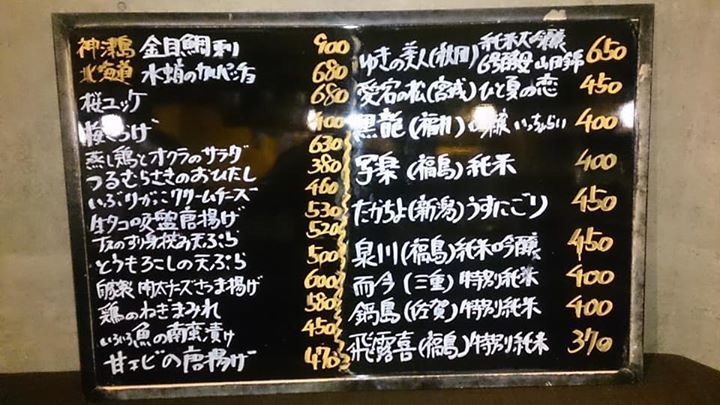 神津島 金目鯛刺 900
北海道 水蛸のカルパッチョ 680
桜ユッケ 680
梅 げ 400
蒸し鶏とオクラのサラダ 630
つるむらさきのおひたし 380
いぶりがっこクリームチーズ 460
生タコ吸盤唐揚げ 530
のすり身挟み天ぷら 520
とうもろこしの天ぷら 500
肉大チーズさつま揚げ 600
鶏のねぎまみれ 580
いろいろ魚の南蛮漬け 450
甘エビの唐揚げ 470
ゆきの美人(秋田) 純米大吟醸 6号酵母 山田錦 650
愛宕の松(宮城)ひと夏の恋 450
黒龍(福井)吟醸 いっちょらい 400
写楽(福島)純米 400
たかちよ(新潟)うすにごり 450
泉川(福島)純米吟醸 450
而今(三重)特別純米 400
鍋島(佐賀)特別純米 400
飛露喜(福島)特別純米 370